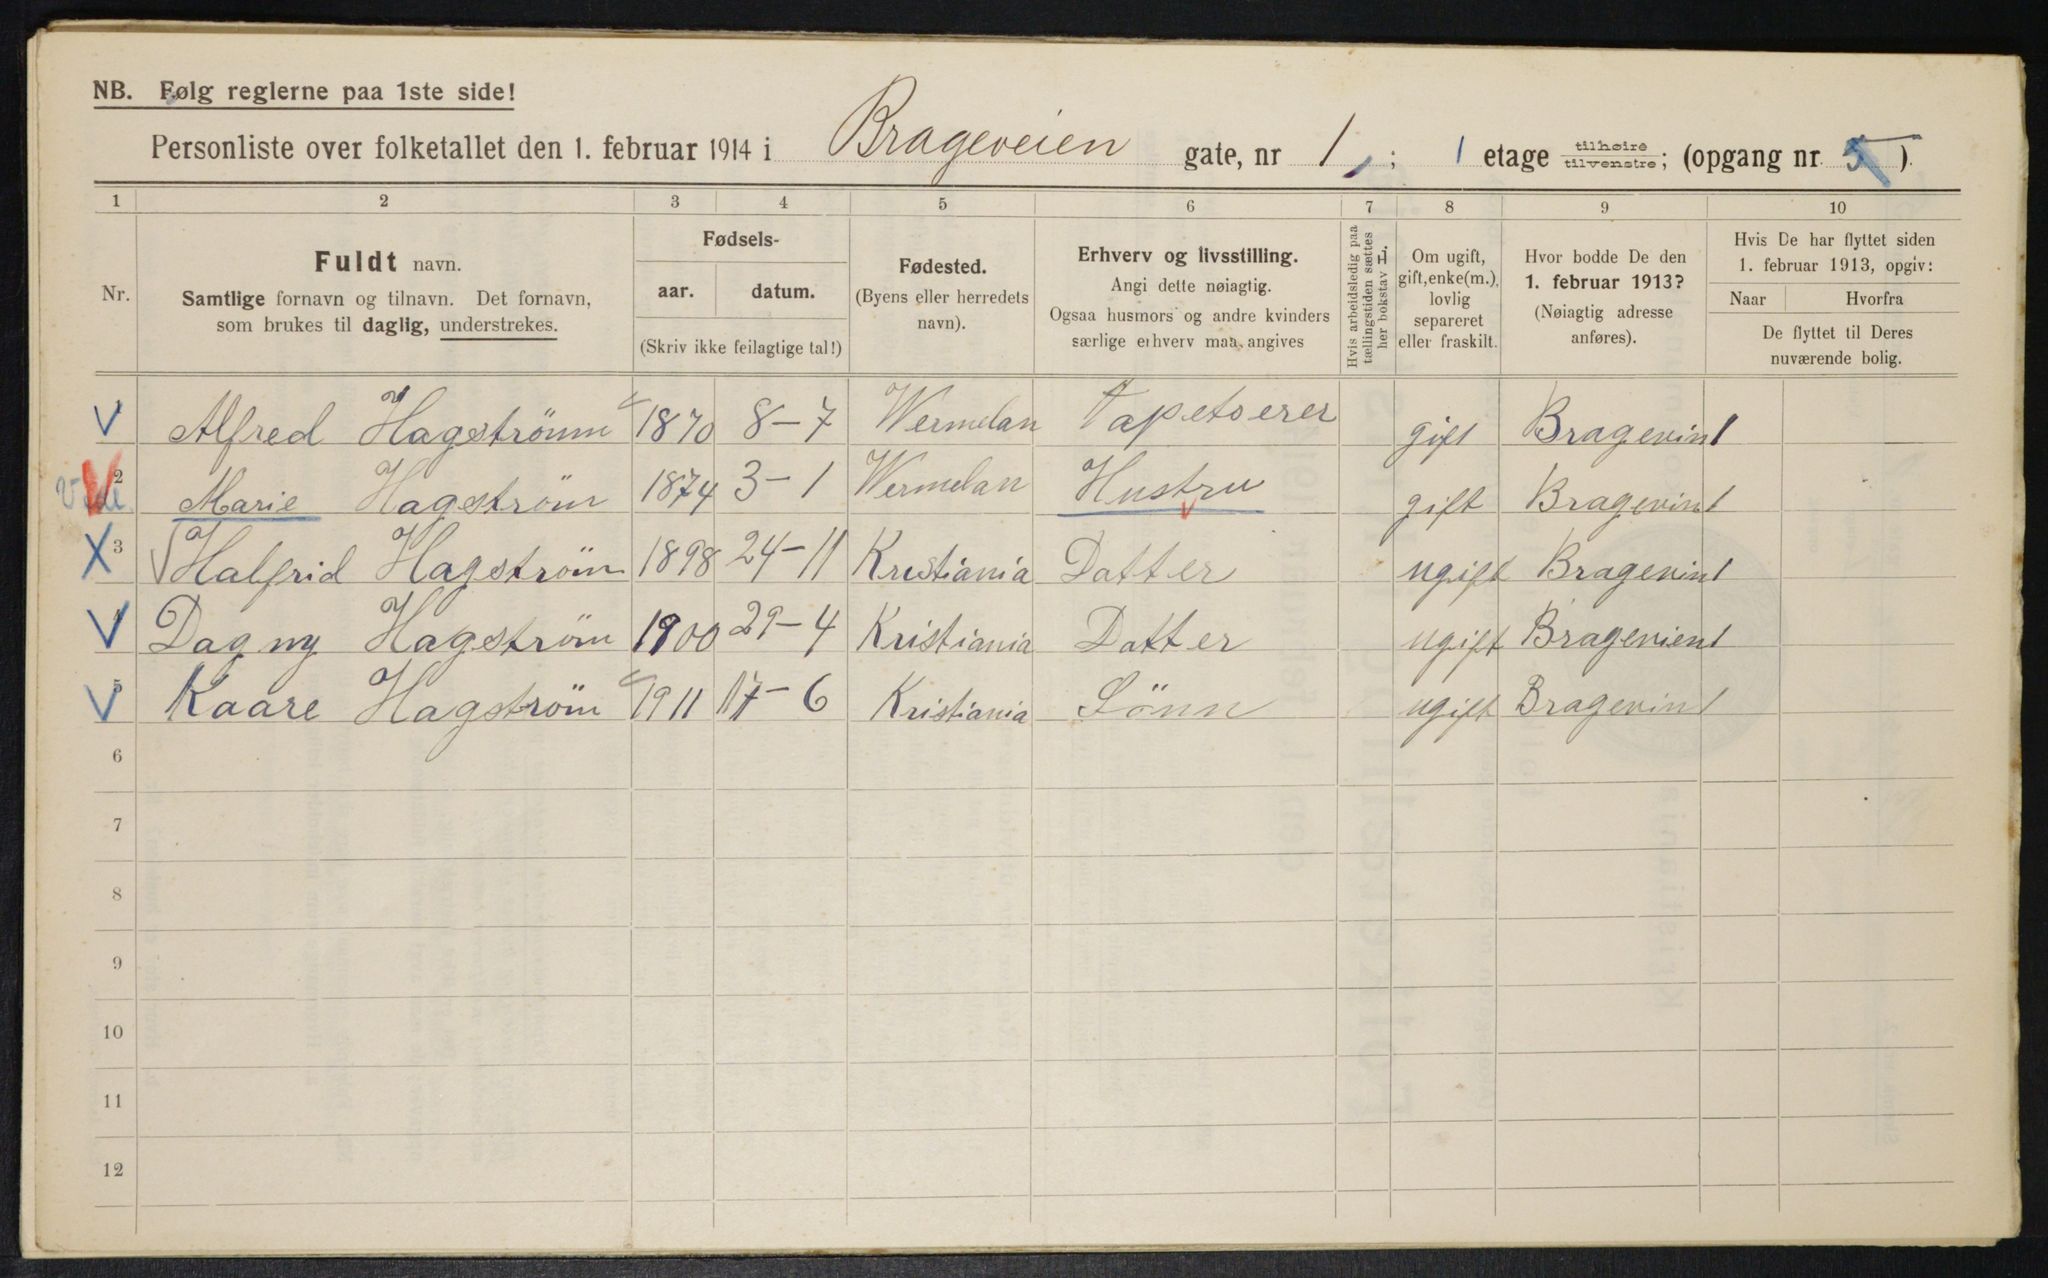 NB. Følg reglerne paa 1ste side!
Personliste over folketallet den 1. februar 1914 i Brageveien gate, nr 1, ; 1 etage tilhøire tilvenstre ; (opgang nr. 5 ).
1 2 3 4 5 6 7 8 9 10
Nr.
Fuldt navn.
Samtlige fornavn og tilnavn. Det fornavn,
som brukes til daglig, understrekes.
Fødsels-
aar. datum.
(Skriv ikke feilagtige tal!)
Fødested.
(Byens eller herredets
navn).
Erhverv og livsstilling.
Angi dette nøiagtig.
Ogsaa husmors og andre kvinders
særlige erhverv maa angives
Hvis arbeidsledig paa
tællingstiden sættes
her bokstav L.
Om ugift,
gift, enke(m.),
lovlig
separeret
eller fraskilt.
Hvor bodde De den
1. februar 1913?
(Nøiagtig adresse
anføres).
Hvis De har flyttet siden
1. februar 1913, opgiv:
Naar Hvorfra
De flyttet til Deres
nuværende bolig.
Alfred Hagströmm 1870 8-7 Wermelan Tapetserer gift Bragevin 1
2 Marie Hagström 1874 3-1 Wermelan Hustru gift Bragevin 1
3 Halfrid Hagström 1898 24-11 Kristiania Datter ugift Bragevin 1
Dagny Hagström 1900 29-4 Kristiania Datter ugift Bragevien 1
5 Kaare Hagström 1911 17-6 Kristiania Sönn ugift Bragevin 1
6
7
8
9
10
11
12